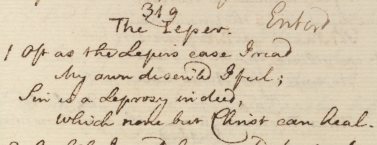 319
The Leper. Enterd
1 Oft as the Lepers case I read
My own describ'd I feel;
Sin is a Leprosy indeed,
Which none but Christ can heal.